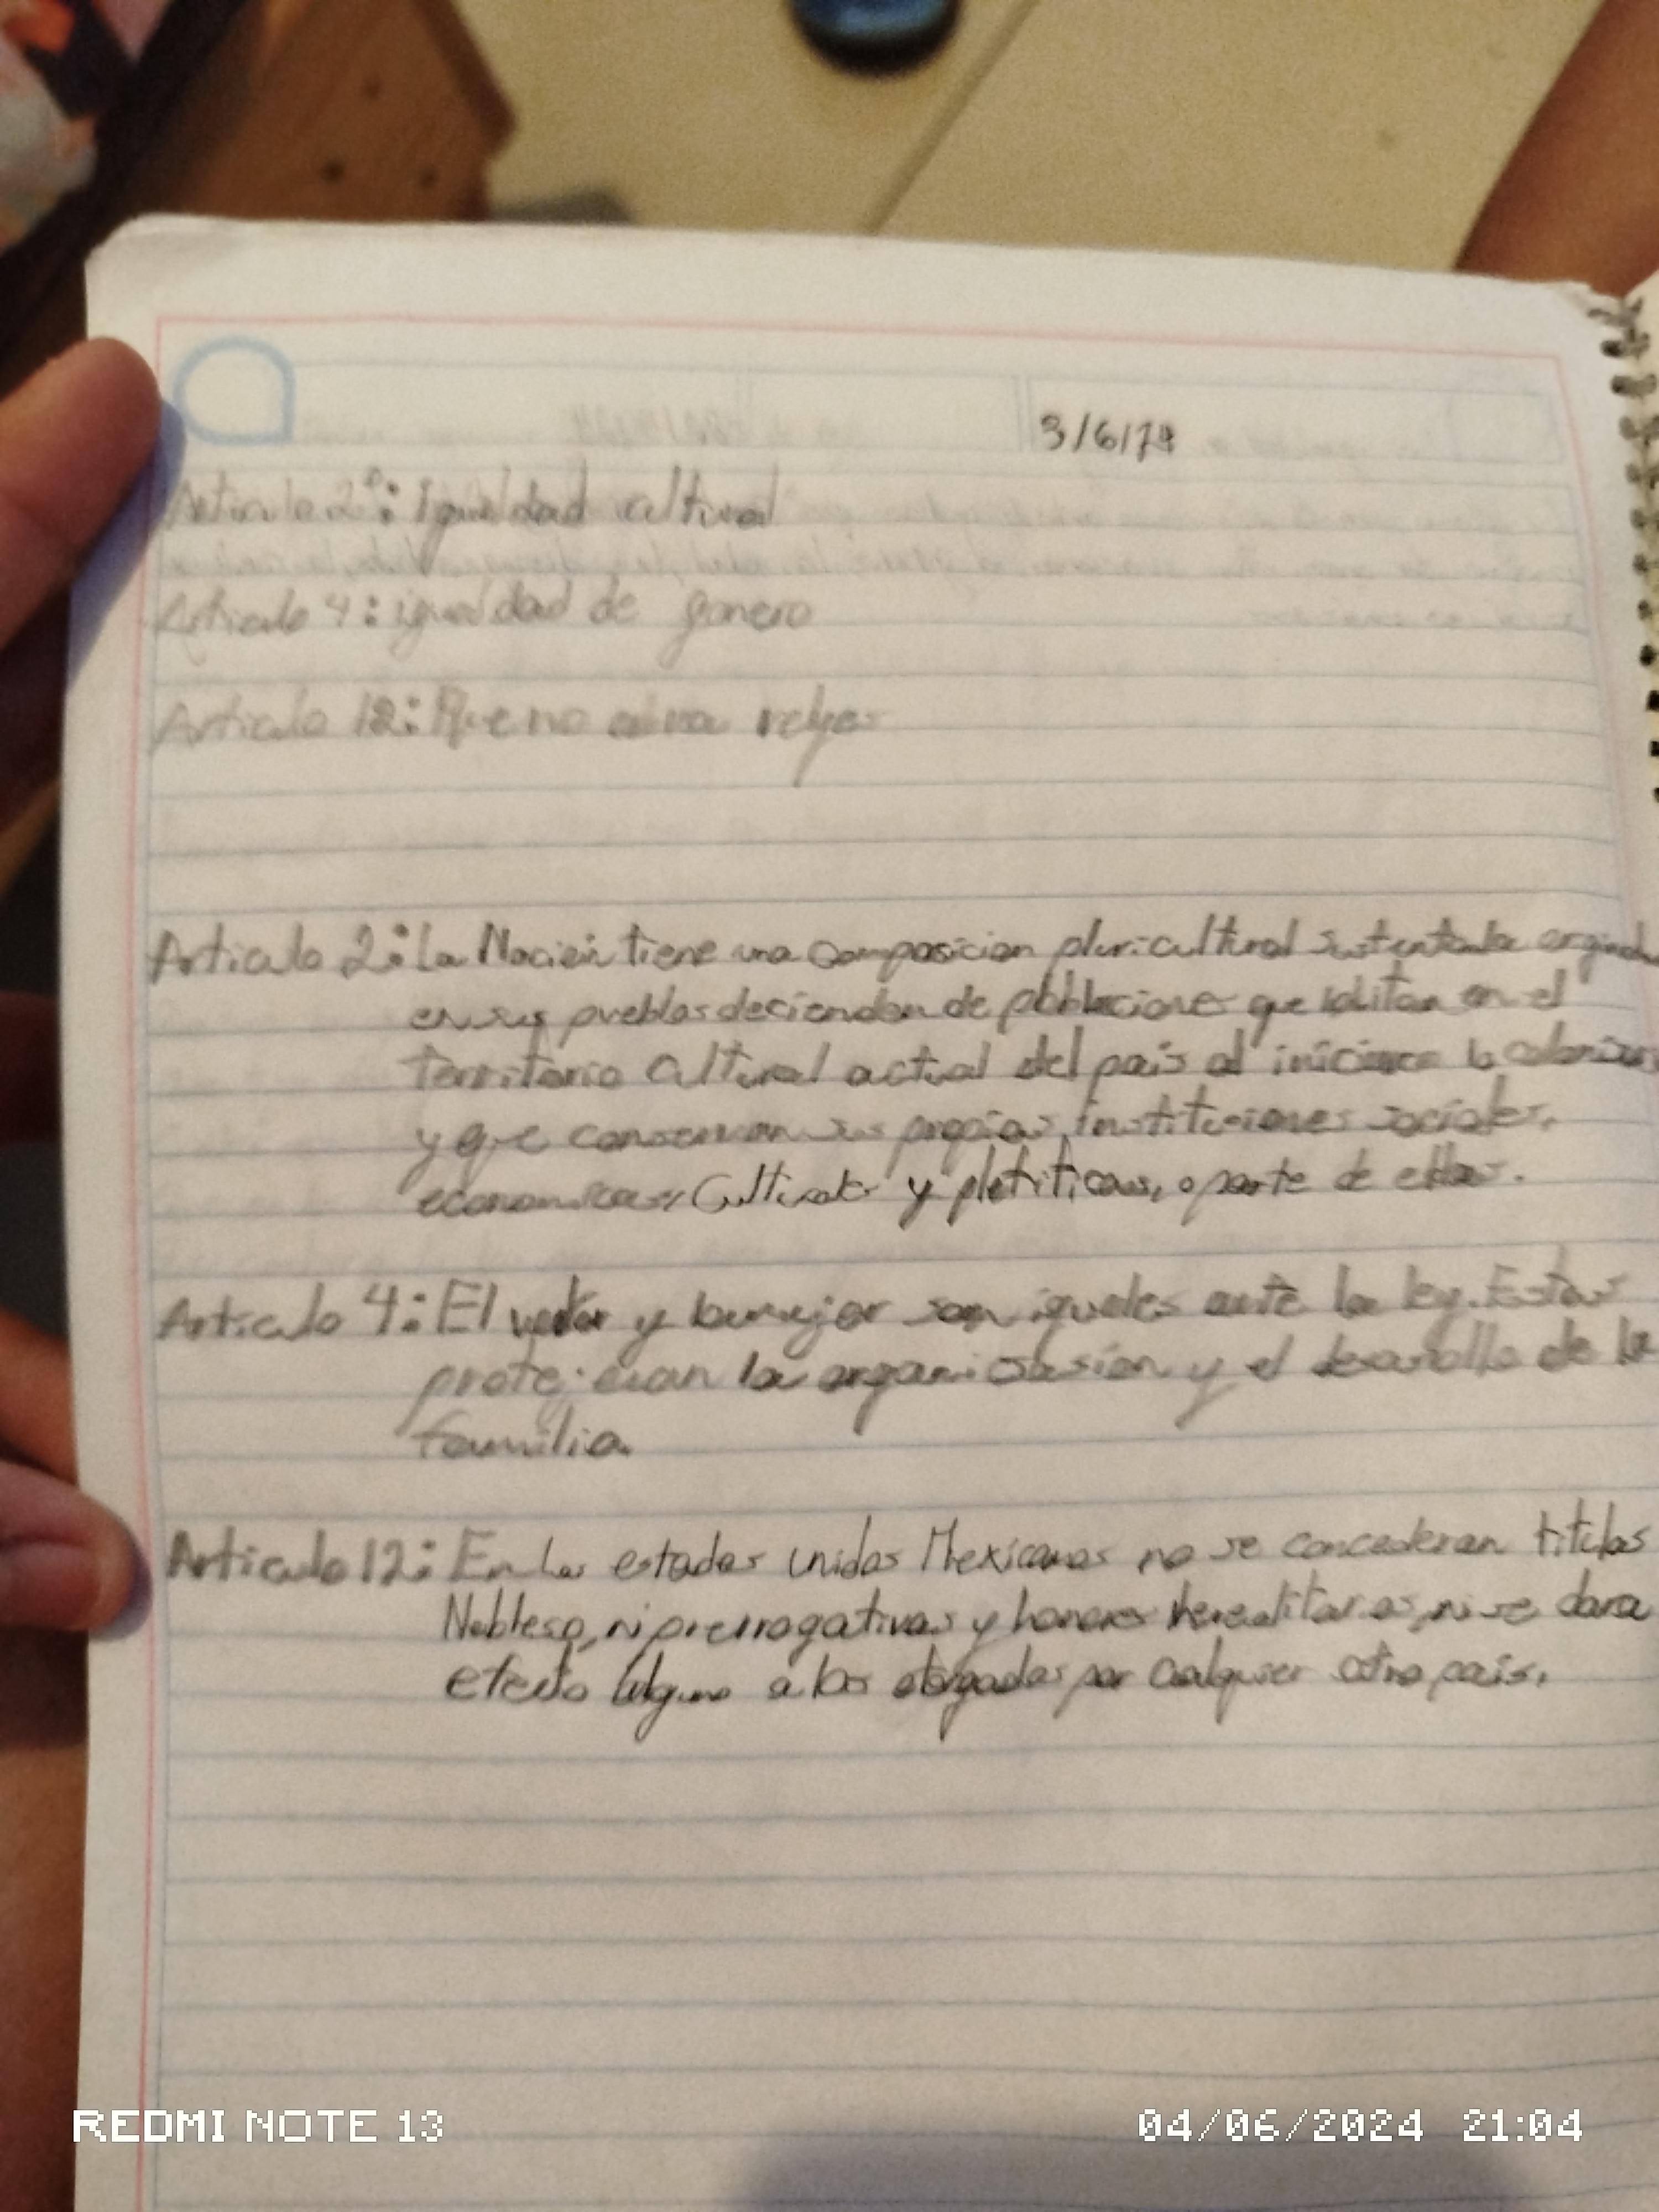 3/6/24
Articulo 2°: Igualdad cultural
Articulo 4: igualdad de genero
Articulo 12: Que no
Articulo 2: La Nación tiene una composicion pluricultural sustentada
en sus pueblos decienden de poblaciones que en el
territorio Cultural actual del país al iniciarse la
y que conservan sus propias instituciones sociales,
economicas, Culturales y, o parte de ellas.
Articulo 4: El y la mujer son iguales ante la ley. Estas
la y el desarollo de la
familia.
Articulo 12: En los estados unidos Mexicanos no se concederan titulos
Noblesa, ni prerrogativas y honores hereditarios, ni se dara
efecto alguno a los otorgados por cualquier otro país.
REDMI NOTE 13
04/06/2024 21:04